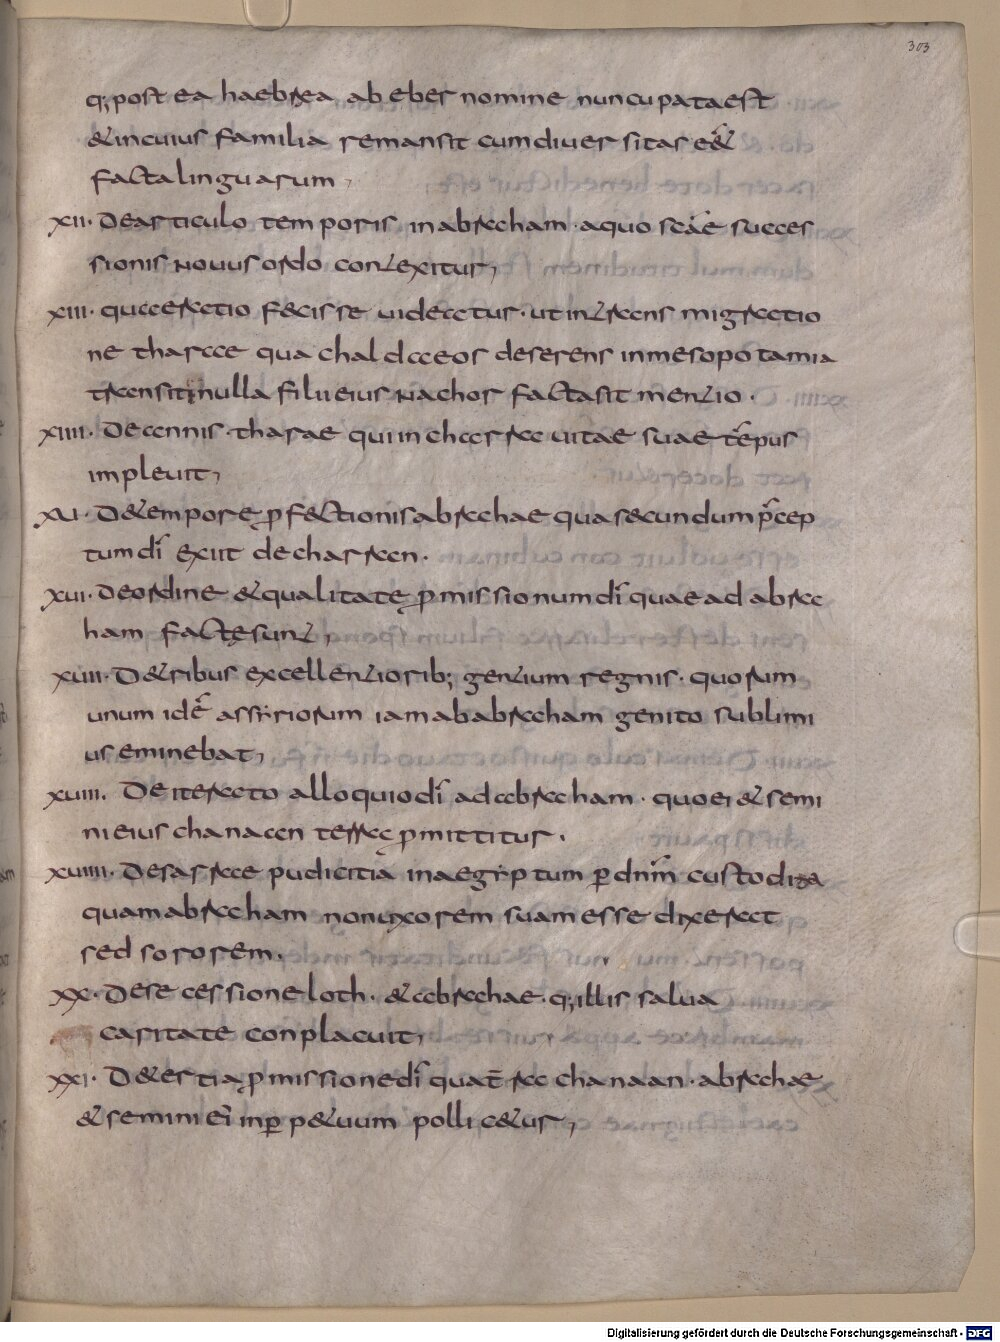 303
q; post ea haebrea ab eber nomine nuncupata est
& in cuius familia remansit cum diuersitas e&́
facta linguarum;
XII· De articulo temporis in abraham· a quo scae succes
sionis nouus ordo contexitur;
XIII· quae ratio fecisse uideatur· ut in transmigratio
ne tharae qua chaldaeos deserens in mesopotamia
transit, nulla filii eius nachor facta sit mentio·
XIIII· De annis· tharae qui in charra uitae suae tēpus
impleuit;
XVI· De tempore p̱fectionis abrahae qua secundum p̄cep
tum dī exiit de charran·
XVI· De ordine & qualitate p̱missionum dī quae ad abra
ham factę sunt;
XVIII· De tribus excellentiorib; gentium regnis· quorum
unum idē assyriorum iam ab abraham genito sublimi
us eminebat;
XVIII. De iterato alloquio dī ad abraham· quo ei & semi
ni eius chanaan terra p̱mittitur·
XVIIII· De sarrae pudicitia in aegyptum p̱ dnm̄ custodita
quam abraham non uxorem suam esse dixerat
sed sororem·
XX· De secessione loth· & abrahae· q; illis salua
caritate conplacuit;
XXI· De tertia p̱missione dī qua t̄ra chanaan· abrahae
& semini ei' in p̱petuum pollicetur;
Digitalisierung gefördert durch die Deutsche Forschungsgemeinschaft - DFG